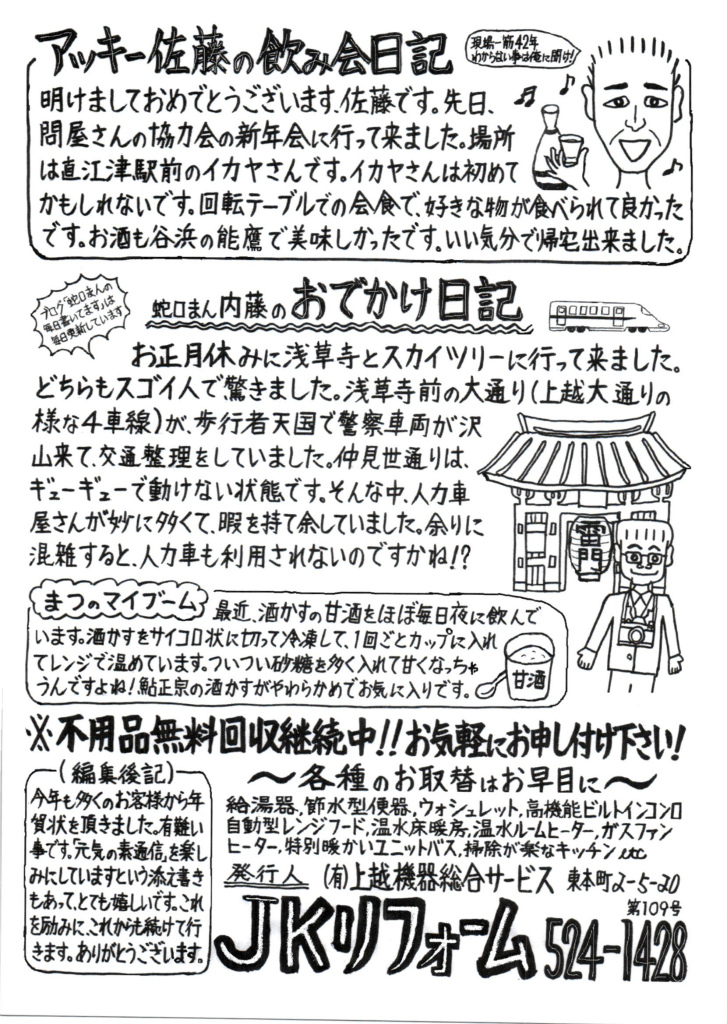 アッキー佐藤の飲み会日記
現場一筋42年
わからない事は俺に聞け!
明けましておめでとうございます、佐藤です。先日、
問屋さんの協力会の新年会に行って来ました。場所
は直江津駅前のイカヤさんです。イカヤさんは初めて
かもしれないです。回転テーブルでの会食で、好きな物が食べられて良かった
です。お酒も谷浜の能鷹で美味しかったです。いい気分で帰宅出来ました。
ブログ「蛇口まんの
毎日書いてます」は
毎日更新しています
蛇口まん内藤のおでかけ日記
お正月休みに浅草寺とスカイツリーに行って来ました。
どちらもスゴイ人で驚きました。浅草寺前の大通り(上越大通りの
様な4車線)が、歩行者天国で警察車両が沢
山来て、交通整理をしていました。仲見世通りは、
ギューギューで動けない状態です。そんな中、人力車
屋さんが妙に多くて、暇を持て余していました。余りに
混雑すると、人力車も利用されないのですかね!?
雷門
まつのマイブーム
最近、酒かすの甘酒をほぼ毎日夜に飲んで
います。酒かすをサイコロ状に切って冷凍して、1回ごとカップに入れ
てレンジで温めています。ついつい砂糖を多く入れて甘くなっちゃ
うんですよね!鮎正宗の酒かすがやわらかめでお気に入りです。
甘酒
※不用品無料回収継続中!!お気軽にお申し付け下さい!
(編集後記)
今年も多くのお客様から年
賀状を頂きました。有難い
事です。「元気の素通信」を楽し
みにしていますという添え書き
もあって、とても嬉しいです。これ
を励みに、これからも続けて行
きます。ありがとうございます。
～各種のお取替はお早目に～
給湯器、節水型便器、ウォシュレット、高機能ビルトインコンロ
自動型レンジフード、温水床暖房、温水ルームヒーター、ガスファン
ヒーター、特別暖かいユニットバス、掃除が楽なキッチン etc
発行人 (有)上越機器総合サービス 東本町2-5-20
第109号
JKリフォーム 524-1428